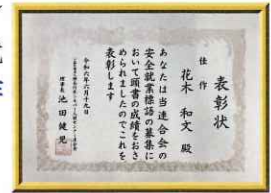 表彰状
佳作
花木 和文 殿
あなたは当連合会の
安全就業標語の募集に
おいて頭書の成績をおさ
められましたのでこれを
表彰します
令和六年六月十九日
理事長 池田 健児